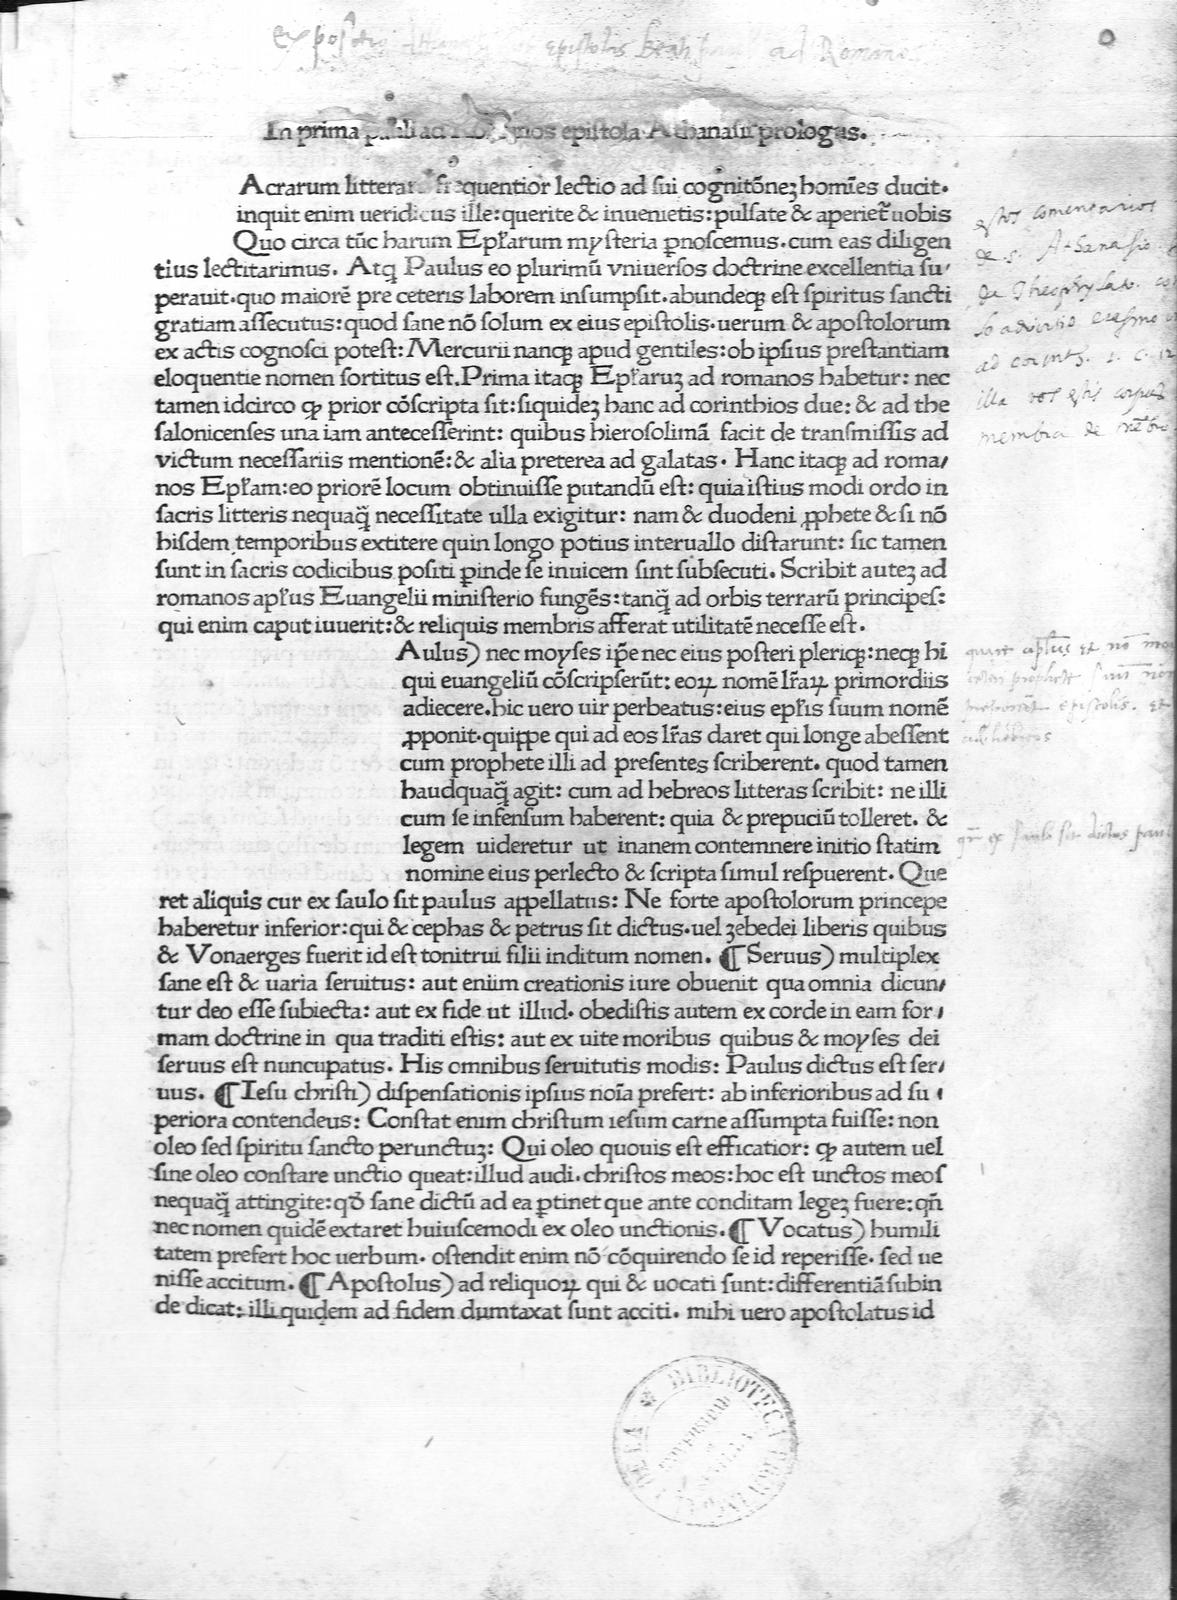 expositio epistolas beati pauli ad Romano
In prima pauli ad Romanos epistola Athanasii prologus.
Acrarum litterarum frequentior lectio ad sui cognitōneʒ homīes ducit.
inquit enim ueridicus ille: querite & inuenietis: pulsate & aperiet̃ uobis
Quo circa tūc harum Epl̃arum mysteria p̱noscemus. cum eas diligen
tius lectitarimus. Atqꝫ Paulus eo plurimū vniuersos doctrine excellentia su/
perauit. quo maiorē pre ceteris laborem insumpsit. abundeqꝫ est spiritus sancti
gratiam assecutus: quod sane nō solum ex eius epistolis. uerum & apostolorum
ex actis cognosci potest: Mercurii nanqꝫ apud gentiles: ob ipsius prestantiam
eloquentie nomen sortitus est. Prima itaqꝫ Epl̃aruʒ ad romanos habetur: nec
tamen idcirco ꝙ prior cōscripta sit: siquideʒ hanc ad corinthios due: & ad the
salonicenses una iam antecesserint: quibus hierosolimā facit de transmissis ad
victum necessariis mentionē: & alia preterea ad galatas. Hanc itaqꝫ ad roma/
nos Epl̃am: eo priorē locum obtinuisse putandū est: quia istius modi ordo in
sacris litteris nequaq̃ necessitate ulla exigitur: nam & duodeni ꝓphete & si nō
hisdem temporibus extitere quin longo potius interuallo distarunt: sic tamen
sunt in sacris codicibus positi ꝑinde se inuicem sint subsecuti. Scribit auteʒ ad
romanos apl̃us Euangelii ministerio fungēs: tanq̃ ad orbis terrarū principes:
qui enim caput iuuerit: & reliquis membris afferat utilitatē necesse est.
Aulus) nec moyses ip̃e nec eius posteri pleriqꝫ: neqꝫ hi
qui euangeliū cōscripserūt: eoꝝ nomē lr̃aꝝ primordiis
adiecere. hic uero uir perbeatus: eius epl̃is suum nomē
ꝓponit. quippe qui ad eos lr̃as daret qui longe abessent
cum prophete illi ad presentes scriberent. quod tamen
haudquaq̃ agit: cum ad hebreos litteras scribit: ne illi
cum se infensum haberent: quia & prepuciū tolleret. &
legem uideretur ut inanem contemnere initio statim
nomine eius perlecto & scripta simul respuerent. Que
ret aliquis cur ex saulo sit paulus appellatus: Ne forte apostolorum princepe
haberetur inferior: qui & cephas & petrus sit dictus. uel ʒebedei liberis quibus
& Vonaerges fuerit id est tonitrui filii inditum nomen. ¶ Seruus) multiplex
sane est & uaria seruitus: aut eniim creationis iure obuenit qua omnia dicun/
tur deo esse subiecta: aut ex fide ut illud. obedistis autem ex corde in eam for/
mam doctrine in qua traditi estis: aut ex uite moribus quibus & moyses dei
seruus est nuncupatus. His omnibus seruitutis modis: Paulus dictus est ser/
uus. ¶ Iesu christi) dispensationis ipsius noīa prefert: ab inferioribus ad su/
periora contendeus: Constat enim christum iesum carne assumpta fuisse: non
oleo sed spiritu sancto perunctuʒ: Qui oleo quouis est efficatior: ꝙ autem uel
sine oleo constare unctio queat: illud audi. christos meos: hoc est unctos meos
nequaq̃ attingite: qđ sane dictū ad ea ꝑtinet que ante conditam legeʒ fuere: qñ
nec nomen quidē extaret huiuscemodi ex oleo unctionis. ¶ Vocatus) humili
tatem prefert hoc uerbum. ostendit enim nō cōquirendo se id reperisse. sed ue
nisse accitum. ¶ Apostolus) ad reliquoꝝ qui & uocati sunt: differentiā subin
de dicat: illi quidem ad fidem dumtaxat sunt acciti. mihi uero apostolatus id
estos comentarios
de s. Athanasio
de Theophylato.
so advirtio erasmo
ad corint. 1. c. 12
illa vos estis corpus
membra de
quare apl̃us et nō
prophete
epistolis. et
ad hebreos
qr̄ ex saulo sit dictus paul
BIBLIOTECA UNIVERSITARIA
UNIVERSIDAD
DE
SEVILLA